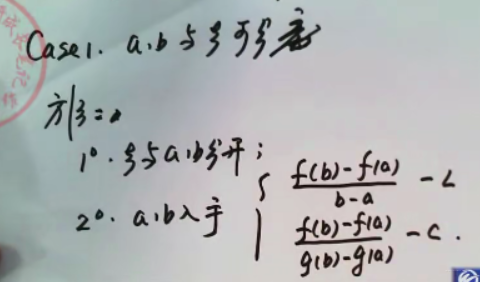 Case1. a.b与ξ可分离
方|ξ=
1°. ξ与a.b分开；
2°. a.b入手 { f(b)-f(a) / b-a - L
f(b)-f(a) / g(b)-g(a) - C.